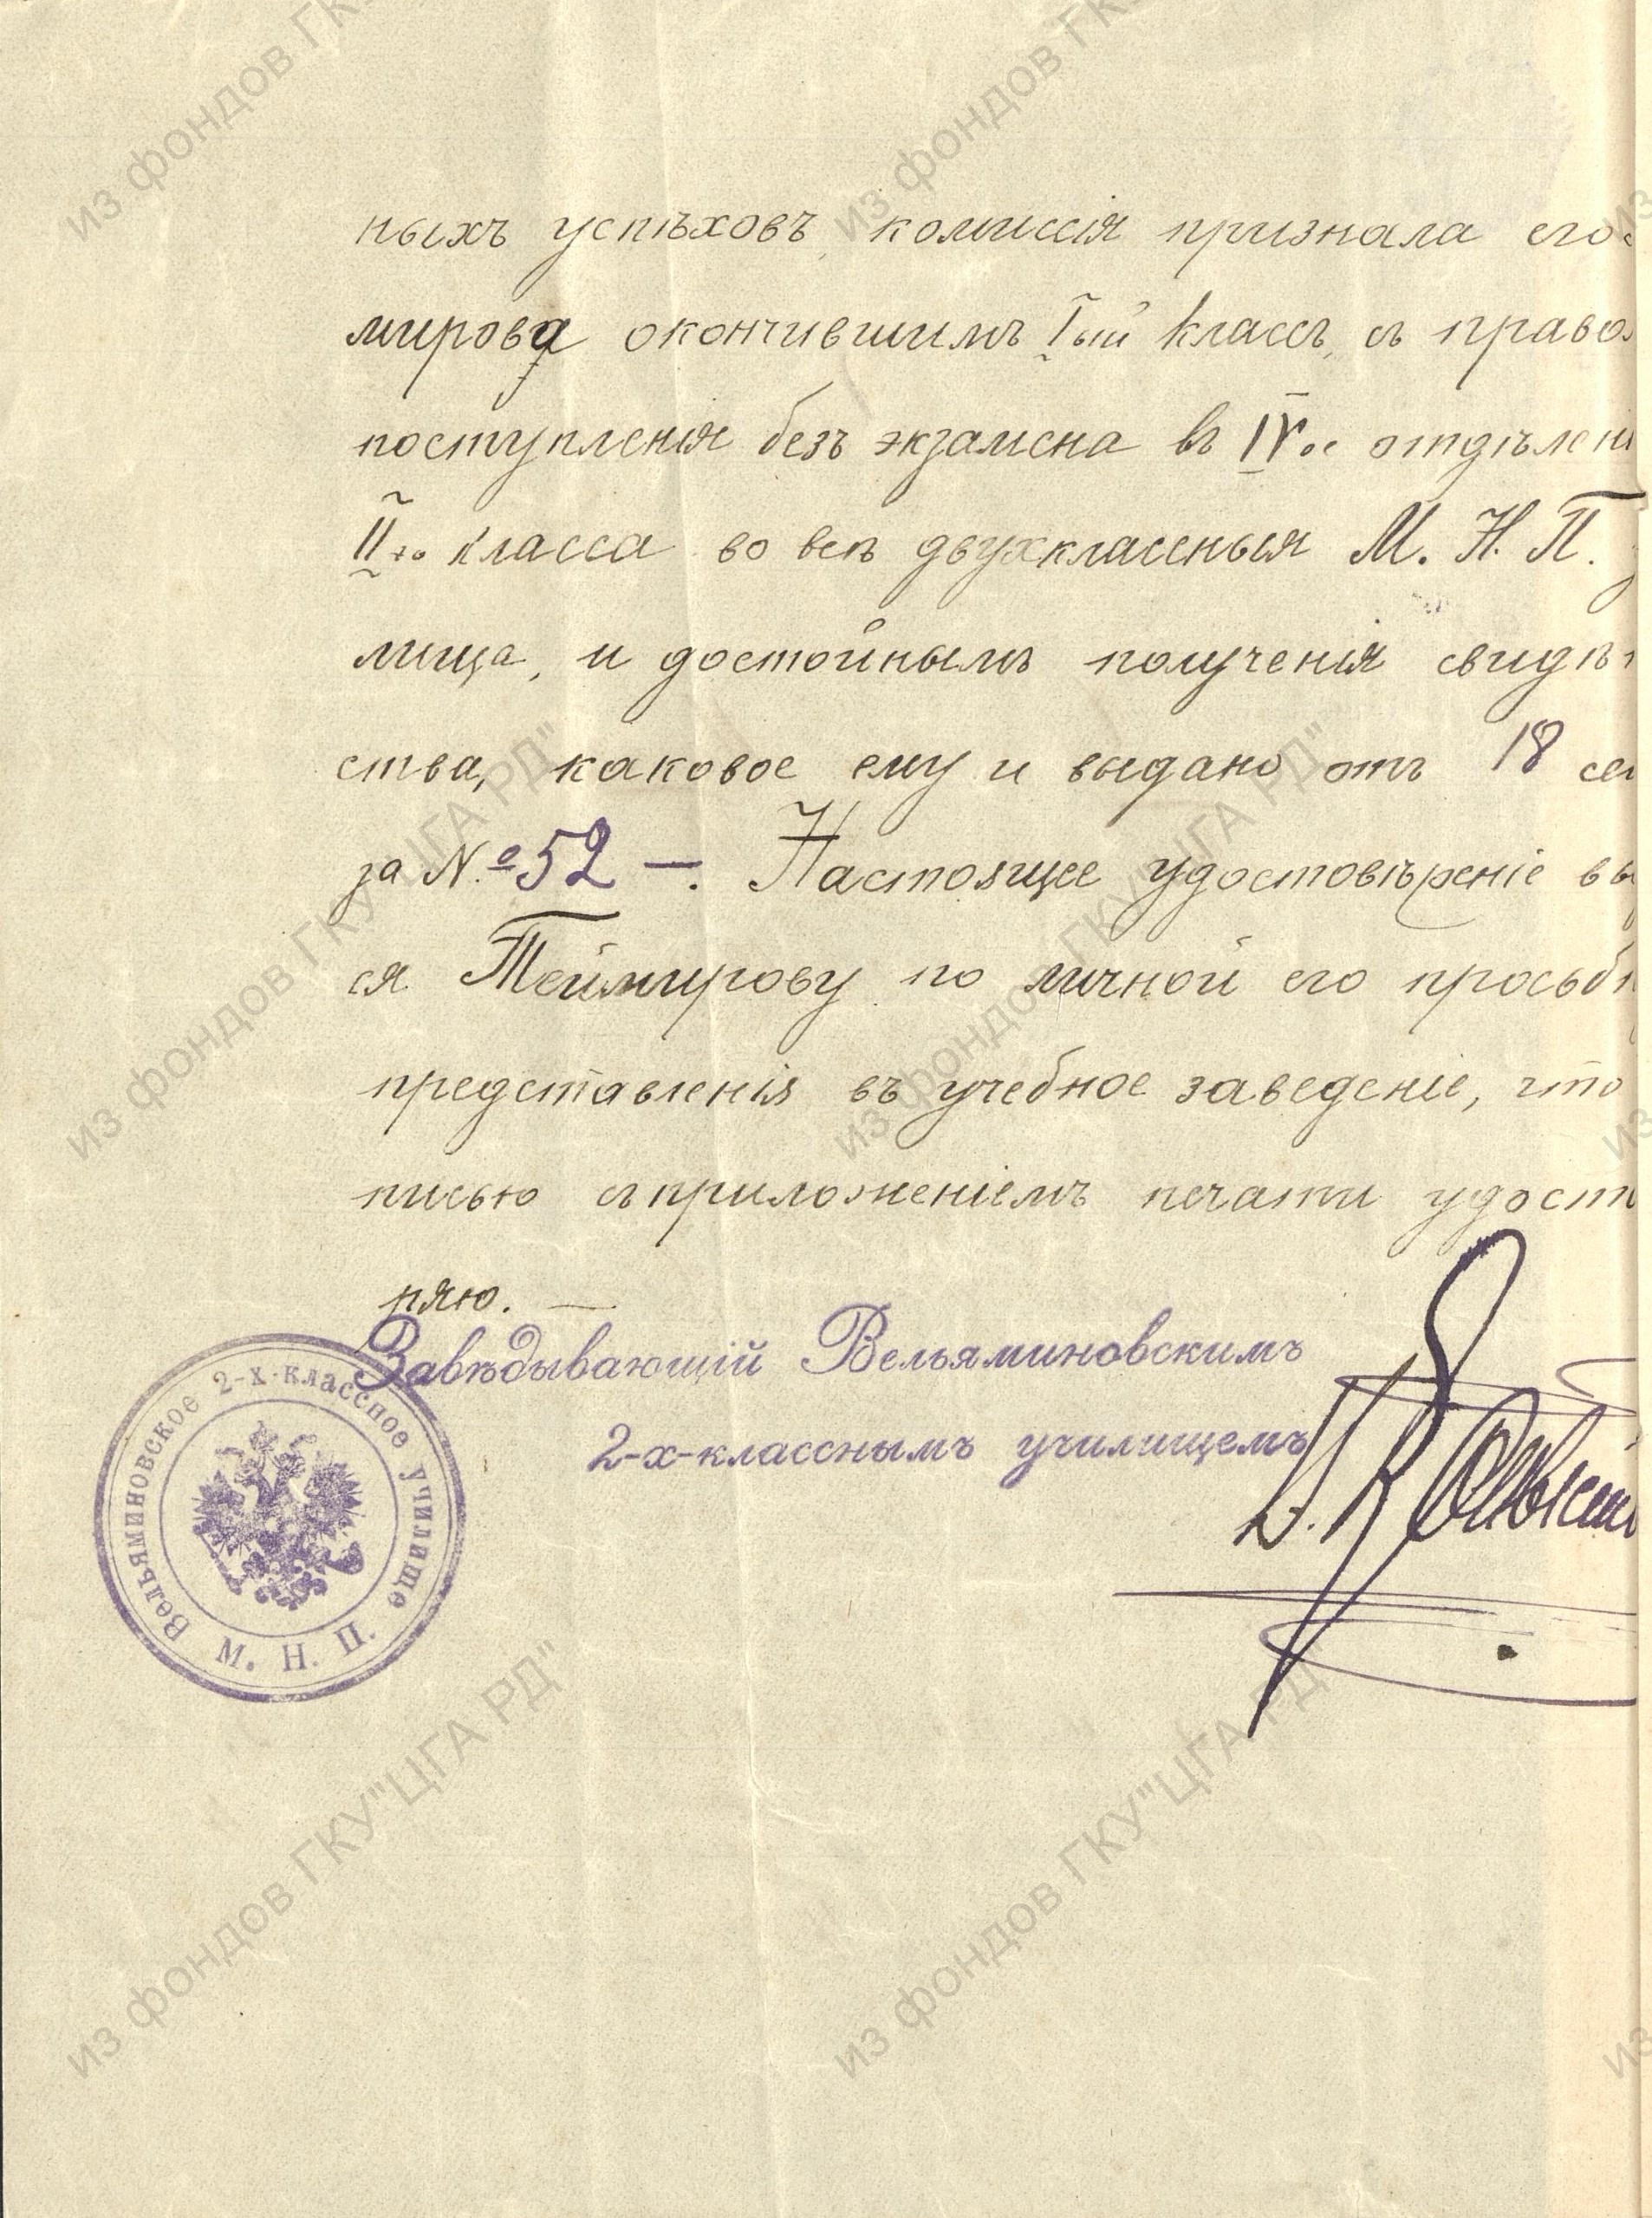 ныхъ успѣховъ, комиссія признала его
мирова окончившимъ Iый классъ, съ право
поступленія безъ экзамена въ IVое отдѣлені
IIго класса во всѣ двухклассныя М. Н. П. у
лища, и достойнымъ полученія свидѣт
ства, каковое ему и выдано отъ 18 сен
за №52 —. Настоящее удостовѣреніе вы
ся Теймирову по личной его просьбѣ
представленія въ учебное заведеніе, что
писью съ приложеніемъ печати удост
ряю. —
Завѣдывающій Вельяминовскимъ
2-х-класснымъ училищемъ
Вельяминовское 2-х-классное училище
М. Н. П.
из фондов ГКУ"ЦГА РД"